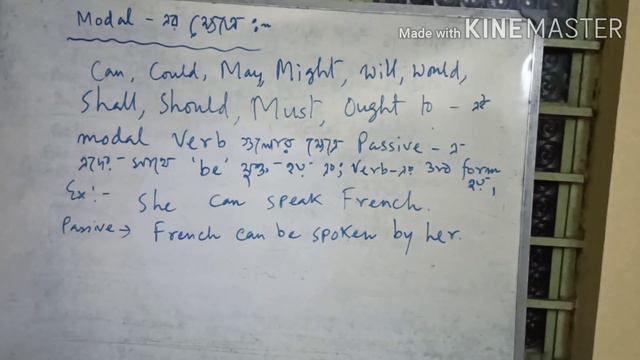 Made with KINEMASTER
Modal - এর ক্ষেত্রে :-
Can, Could, May, Might, Will, Would,
Shall, Should, Must, Ought to - এই
modal Verb গুলোর ক্ষেত্রে Passive - এ
এদের সাথে 'be' যুক্ত হয় এবং Verb-এর 3rd form হয়,
Ex:- She can speak French.
Passive → French can be spoken by her.